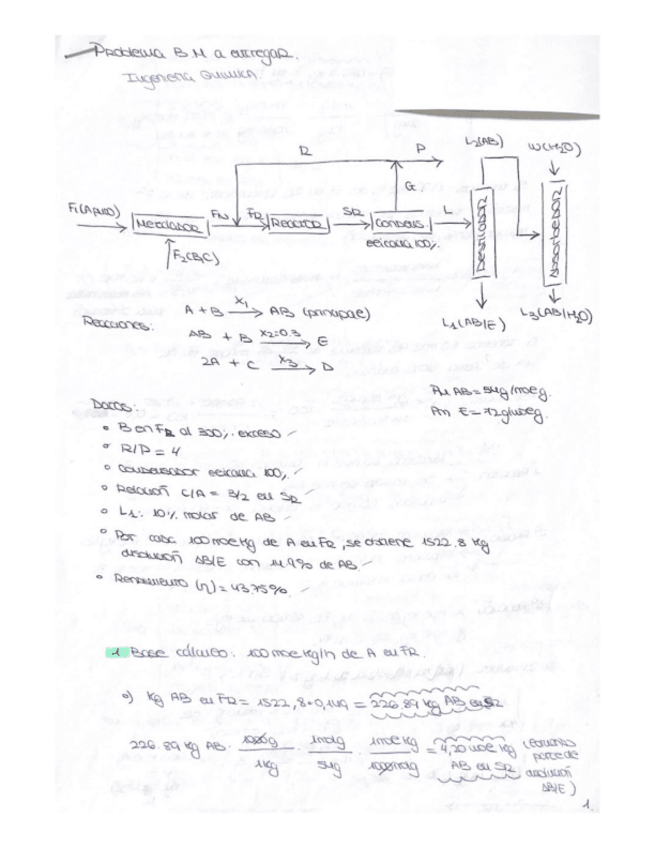 Problema B.M a entregar.
Ingeniería Química.
R
P
L2(AB)
W(H2O)
G
F1(A puro)
Mezclador
FN
FR
Reactor
SR
Condens.
L
eficacia 100%
F2(B,C)
Destilador
Absorbedor
L1(AB/E)
L3(AB/H2O)
Reacciones:
A + B X1 AB (principal)
AB + B X2=0.3 E
2A + C X3 D
Pm AB = 54g/molg.
Pm E = 72g/molg.
Datos:
B en FR al 300%. exceso
R/P = 4
Condensador eficacia 100%
Relación C/A = 3/2 en SR
L1: 10% molar de AB
Por cada 100 molkg de A en FR, se obtiene 1522.8 kg
disolución AB/E con 14.9% de AB
Rendimiento (η) = 43,75%
1 Base cálculo: 100 molkg/h de A en FR.
o) kg AB en FR = 1522,8·0,149 = 226.89 kg AB en SR
226.89 kg AB · 1000g/1kg · 1molg/54g · 1molkg/1000molg = 4,20 molkg AB en SR
disolución AB/E)
1